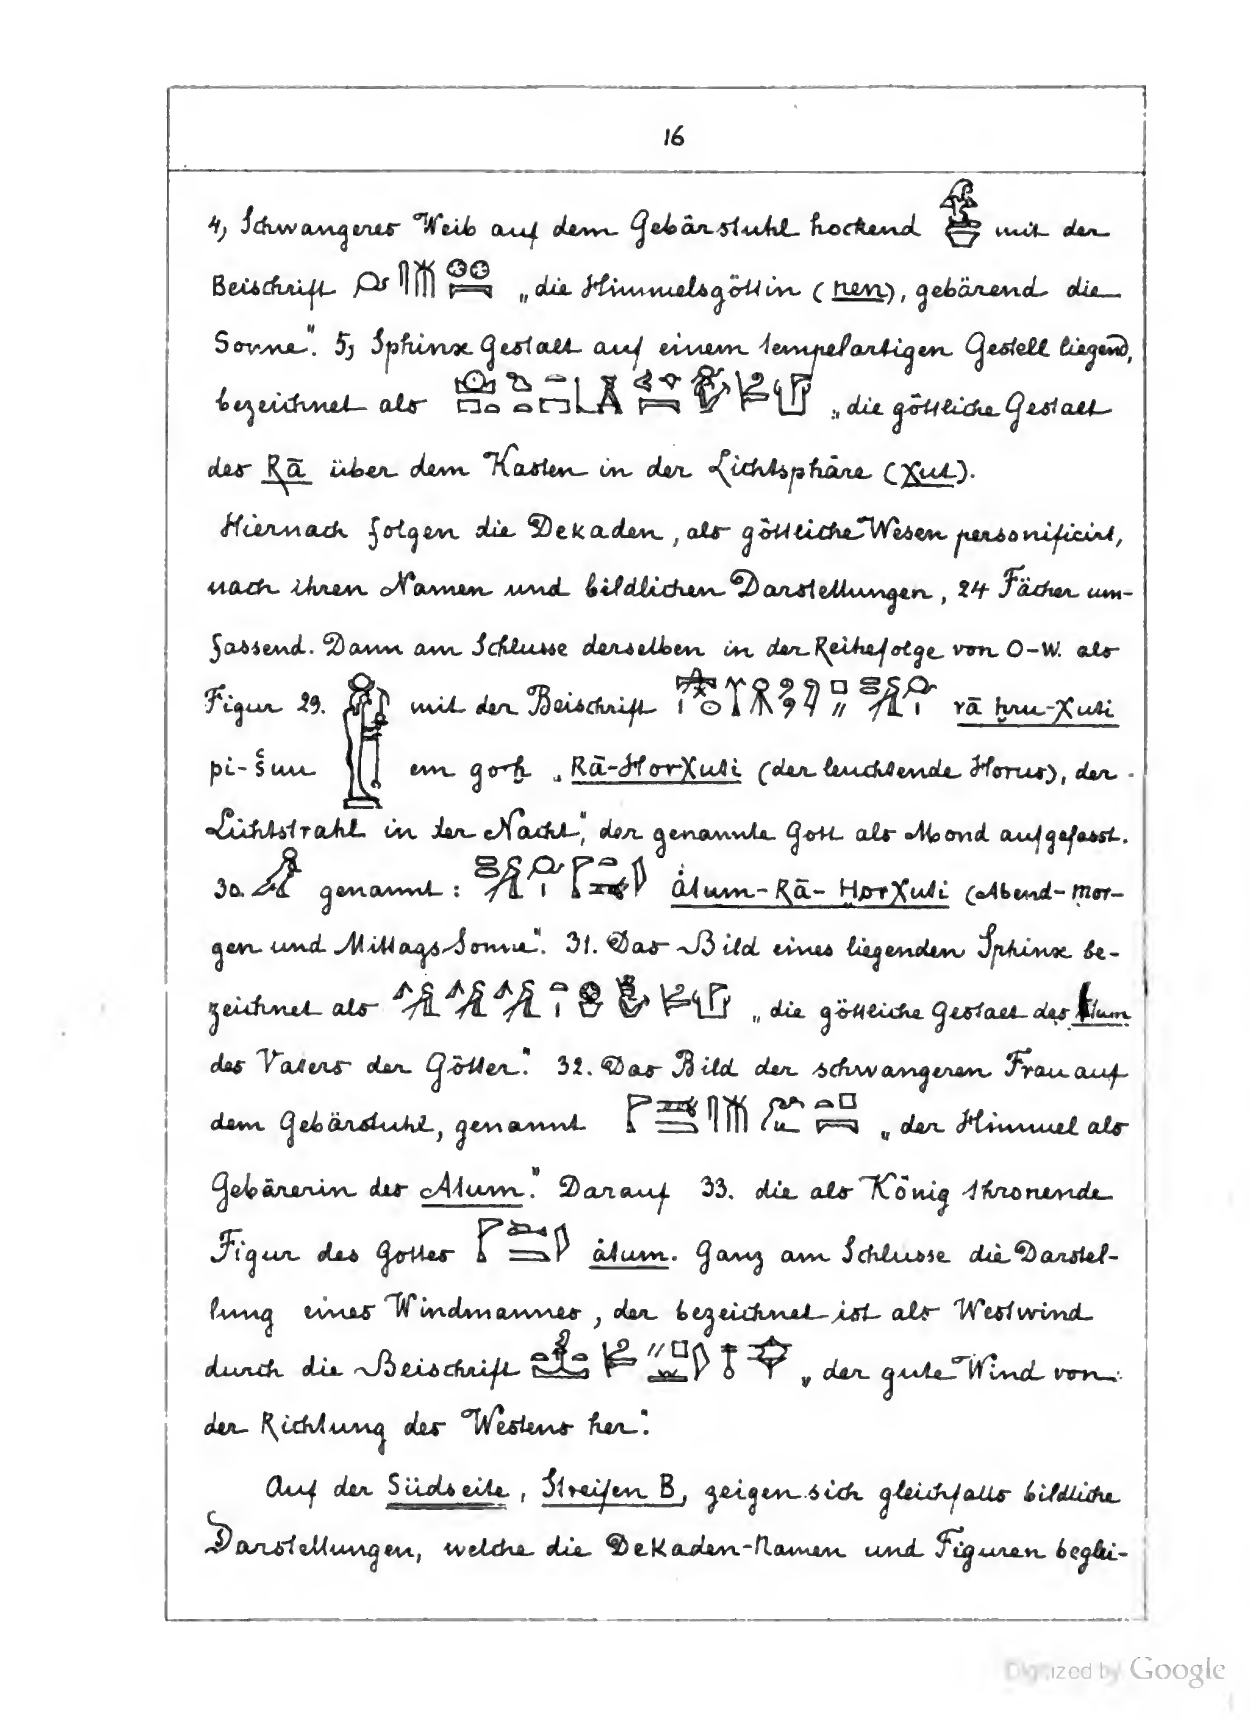 16
4, Schwangeres Weib auf dem Gebärstuhl hockend mit der
Beischrift „die Himmelsgöttin (nen), gebärend die
Sonne". 5, Sphinx Gestalt auf einem tempelartigen Gestell liegend,
bezeichnet als „die göttliche Gestalt
des Rā über dem Kasten in der Lichtsphäre (χut).
Hiernach folgen die Dekaden, als göttliche Wesen personificirt,
nach ihren Namen und bildlichen Darstellungen, 24 Fächer um-
fassend. Dann am Schlusse derselben in der Reihefolge von O-W. als
Figur 29. mit der Beischrift rā ḥru-χuti
pi-šuu em gorḥ „Rā-Horχuti (der leuchtende Horus), der
Lichtstrahl in der Nacht", der genannte Gott als Mond aufgefasst.
30. genannt: åtum-Rā-Ḥorχuti (Abend-Mor-
gen und Mittags-Sonne". 31. Das Bild eines liegenden Sphinx be-
zeichnet als „die göttliche Gestalt des Atum
des Vaters der Götter". 32. Das Bild der schwangeren Frau auf
dem Gebärstuhl, genannt „der Himmel als
Gebärerin des Atum". Darauf 33. die als König thronende
Figur des Gottes åtum. Ganz am Schlusse die Darstel-
lung eines Windmannes, der bezeichnet ist als Westwind
durch die Beischrift „der gute Wind von
der Richtung des Westens her".
Auf der Südseite, Streifen B, zeigen sich gleichfalls bildliche
Darstellungen, welche die Dekaden-Namen und Figuren beglei-
Digitized by Google